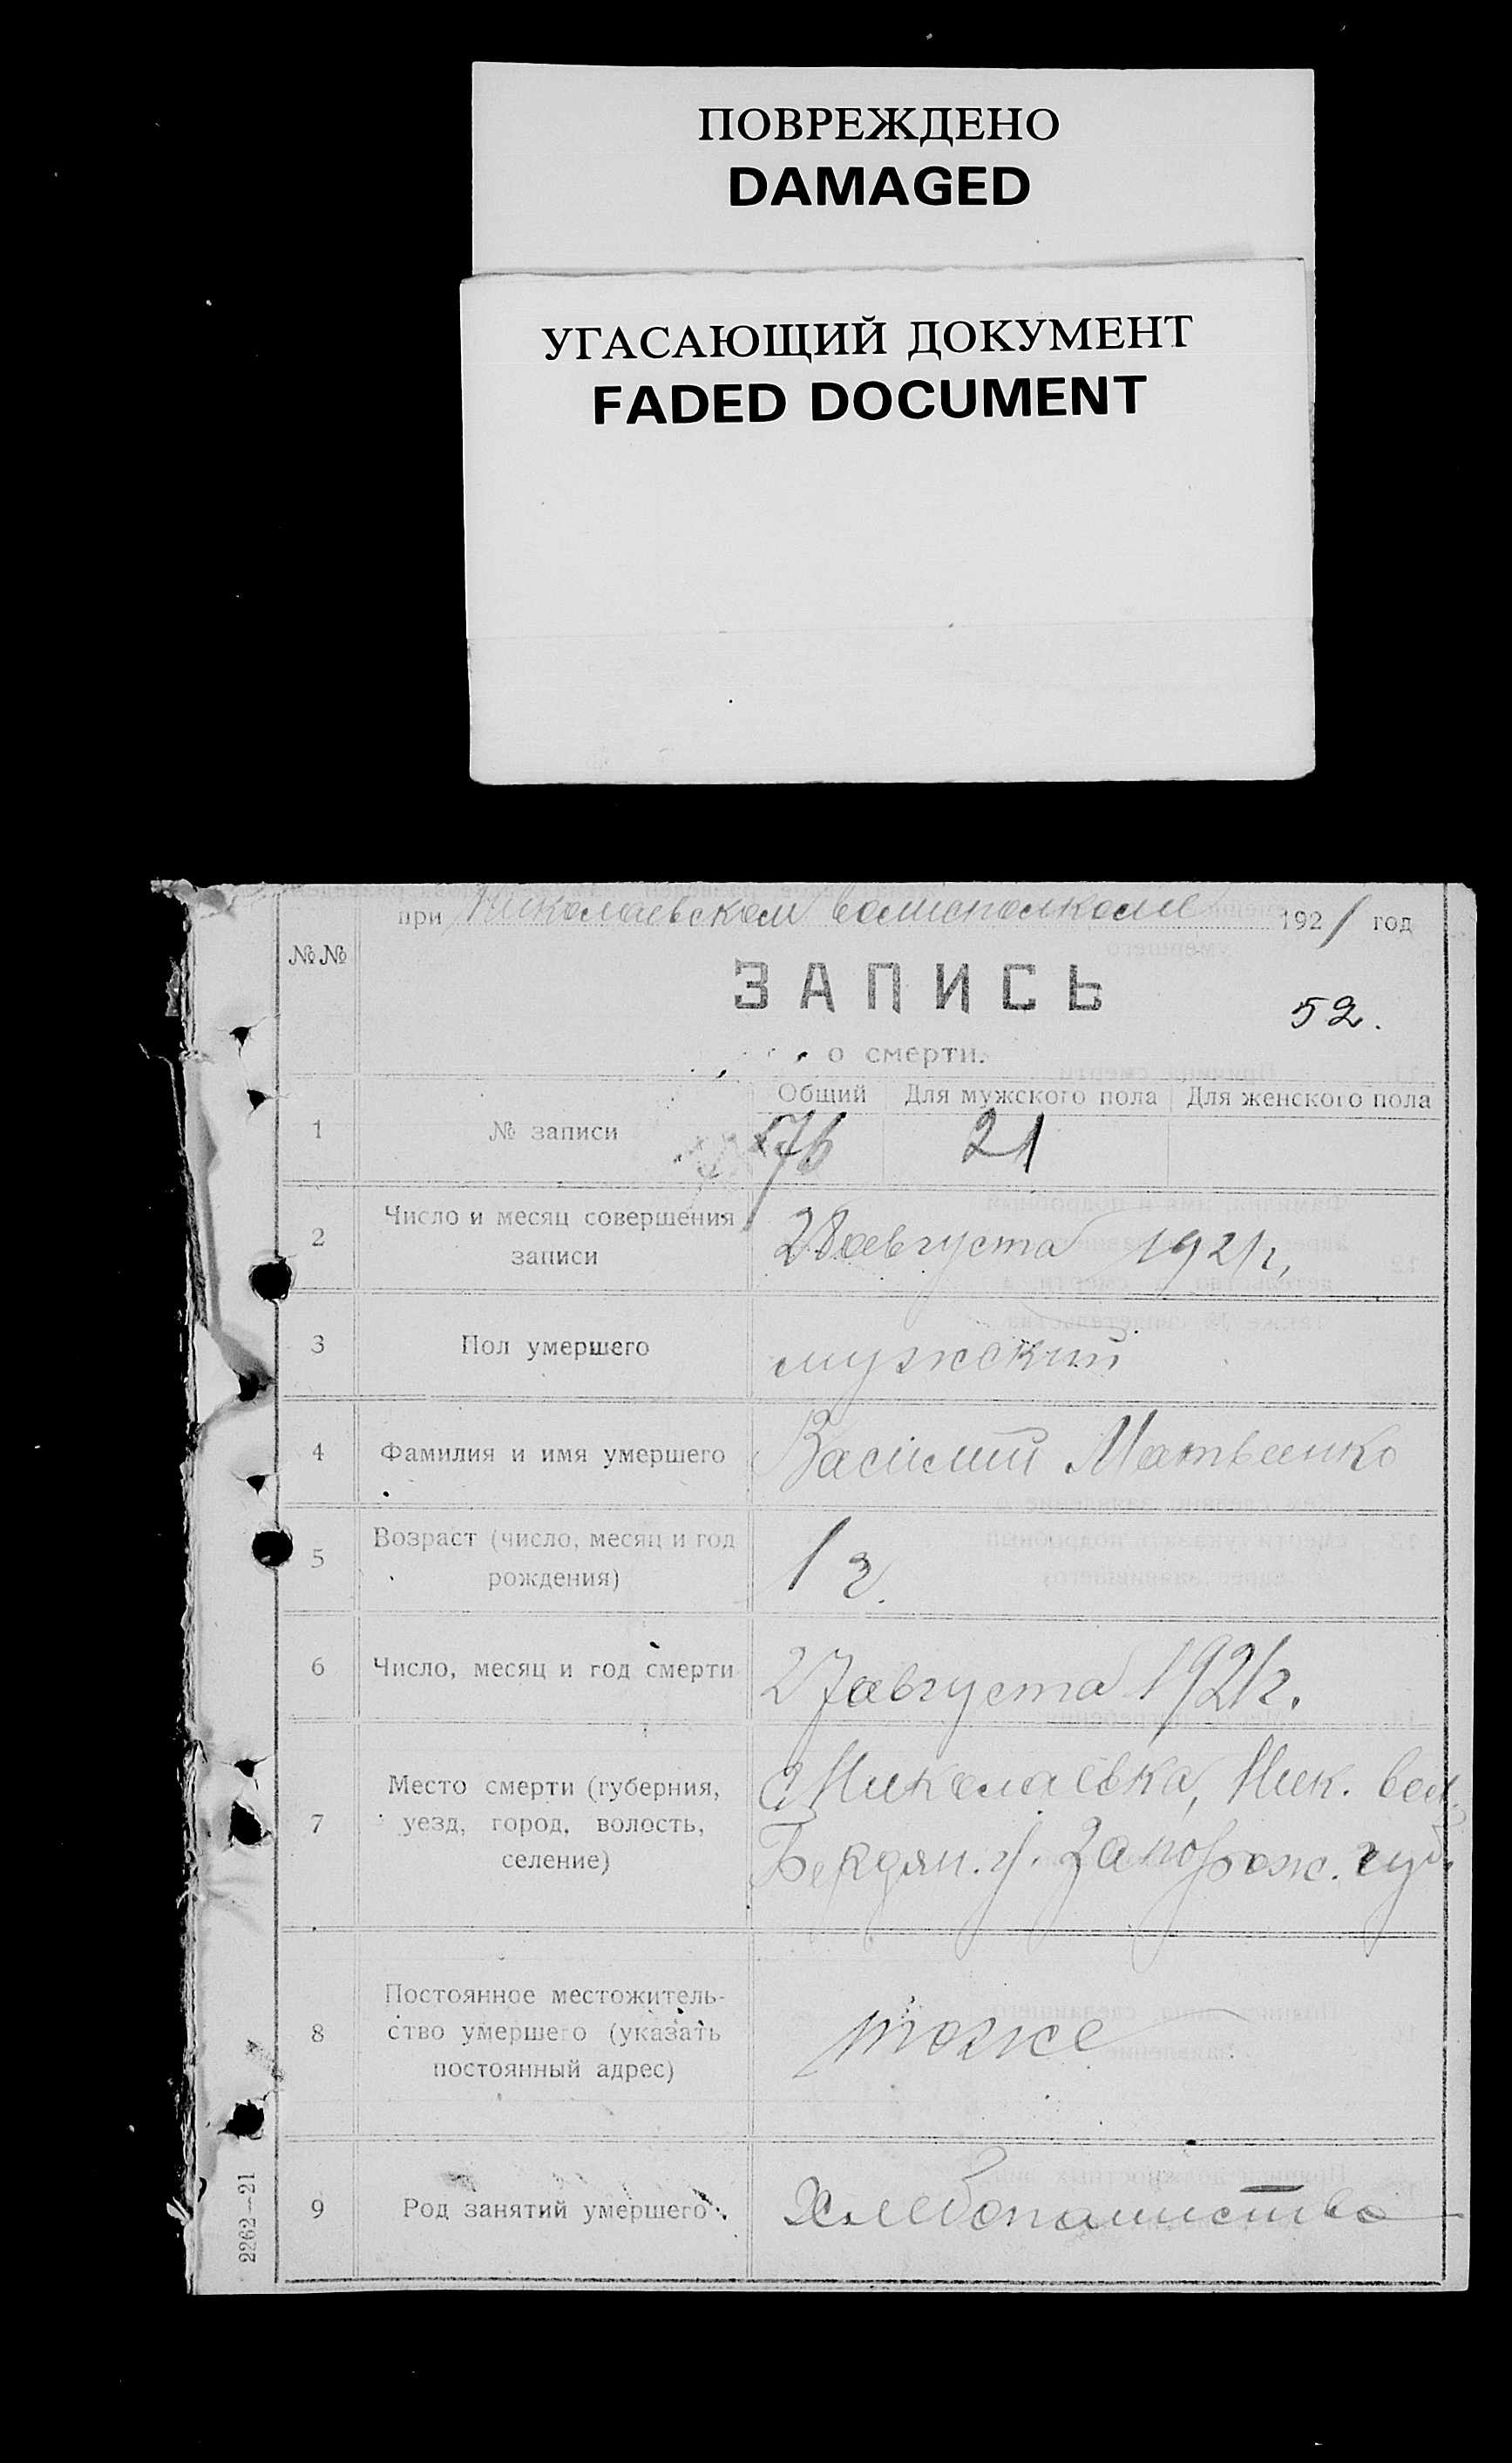 ПОВРЕЖДЕНО
DAMAGED
УГАСАЮЩИЙ ДОКУМЕНТ
FADED DOCUMENT
при Николаевском волисполкоме 1921 год
№№
ЗАПИСЬ
52.
о смерти.
Общий Для мужского пола Для женского пола
1 № записи 76 21
2 Число и месяц совершения
записи
28 августа 1921 г,
3 Пол умершего мужский
4 Фамилия и имя умершего Василий Матвеенко
5 Возраст (число, месяц и год
рождения)
1 г.
6 Число, месяц и год смерти 27 августа 1921 г.
7 Место смерти (губерния,
уезд, город, волость,
селение)
с Николаевка, Ник. вол.
Бердян. у. Запорож. губ.
8 Постоянное местожитель-
ство умершего (указать
постоянный адрес)
тоже
9 Род занятий умершего Хлебопашество
2262—21